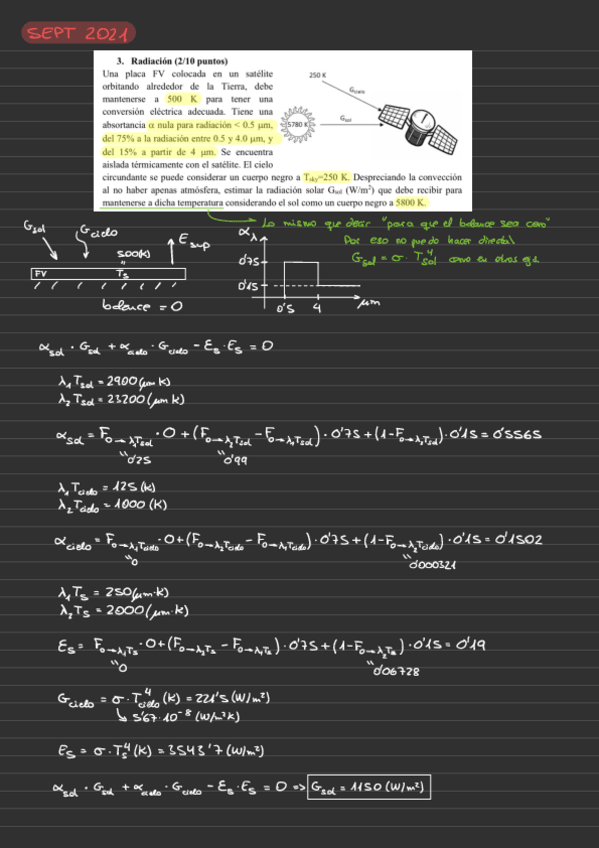 SEPT 2021
3. Radiación (2/10 puntos)
Una placa FV colocada en un satélite
orbitando alrededor de la Tierra, debe
mantenerse a 500 K para tener una
conversión eléctrica adecuada. Tiene una
absortancia α nula para radiación < 0.5 μm,
del 75% a la radiación entre 0.5 y 4.0 μm, y
del 15% a partir de 4 μm. Se encuentra
aislada térmicamente con el satélite. El cielo
circundante se puede considerar un cuerpo negro a Tsky=250 K. Despreciando la convección
al no haber apenas atmósfera, estimar la radiación solar Gsol (W/m²) que debe recibir para
mantenerse a dicha temperatura considerando el sol como un cuerpo negro a 5800 K.
250 K
Gcielo
5780 K
Gsol
Lo mismo que decir "para que el balance sea cero"
Por eso no puedo hacer directal
Gsol = σ · Tsol⁴ como en otros ejs
Gsol
Gcielo
500(K)
Esup
FV
Ts
balance = 0
αλ
0'75
0'15
0'5
4
μm
αsol · Gsol + αcielo · Gcielo - Es · Es = 0
λ1 Tsol = 2900 (μm K)
λ2 Tsol = 23200 (μm K)
αsol = F0→λ1Tsol · 0 + (F0→λ2Tsol - F0→λ1Tsol) · 0'75 + (1-F0→λ2Tsol) · 0'15 = 0'5565
0'25
0'99
λ1 Tcielo = 125 (K)
λ2 Tcielo = 1000 (K)
αcielo = F0→λ1Tcielo · 0 + (F0→λ2Tcielo - F0→λ1Tcielo) · 0'75 + (1-F0→λ2Tcielo) · 0'15 = 0'1502
0
0'000321
λ1 Ts = 250 (μm·K)
λ2 Ts = 2000 (μm·K)
Es = F0→λ1Ts · 0 + (F0→λ2Ts - F0→λ1Ts) · 0'75 + (1-F0→λ2Ts) · 0'15 = 0'19
0
0'06728
Gcielo = σ · Tcielo⁴ (K) = 221'5 (W/m²)
5'67·10⁻⁸ (W/m²K)
Es = σ · Ts⁴ (K) = 3543'7 (W/m²)
αsol · Gsol + αcielo · Gcielo - Es · Es = 0 => Gsol = 1150 (W/m²)